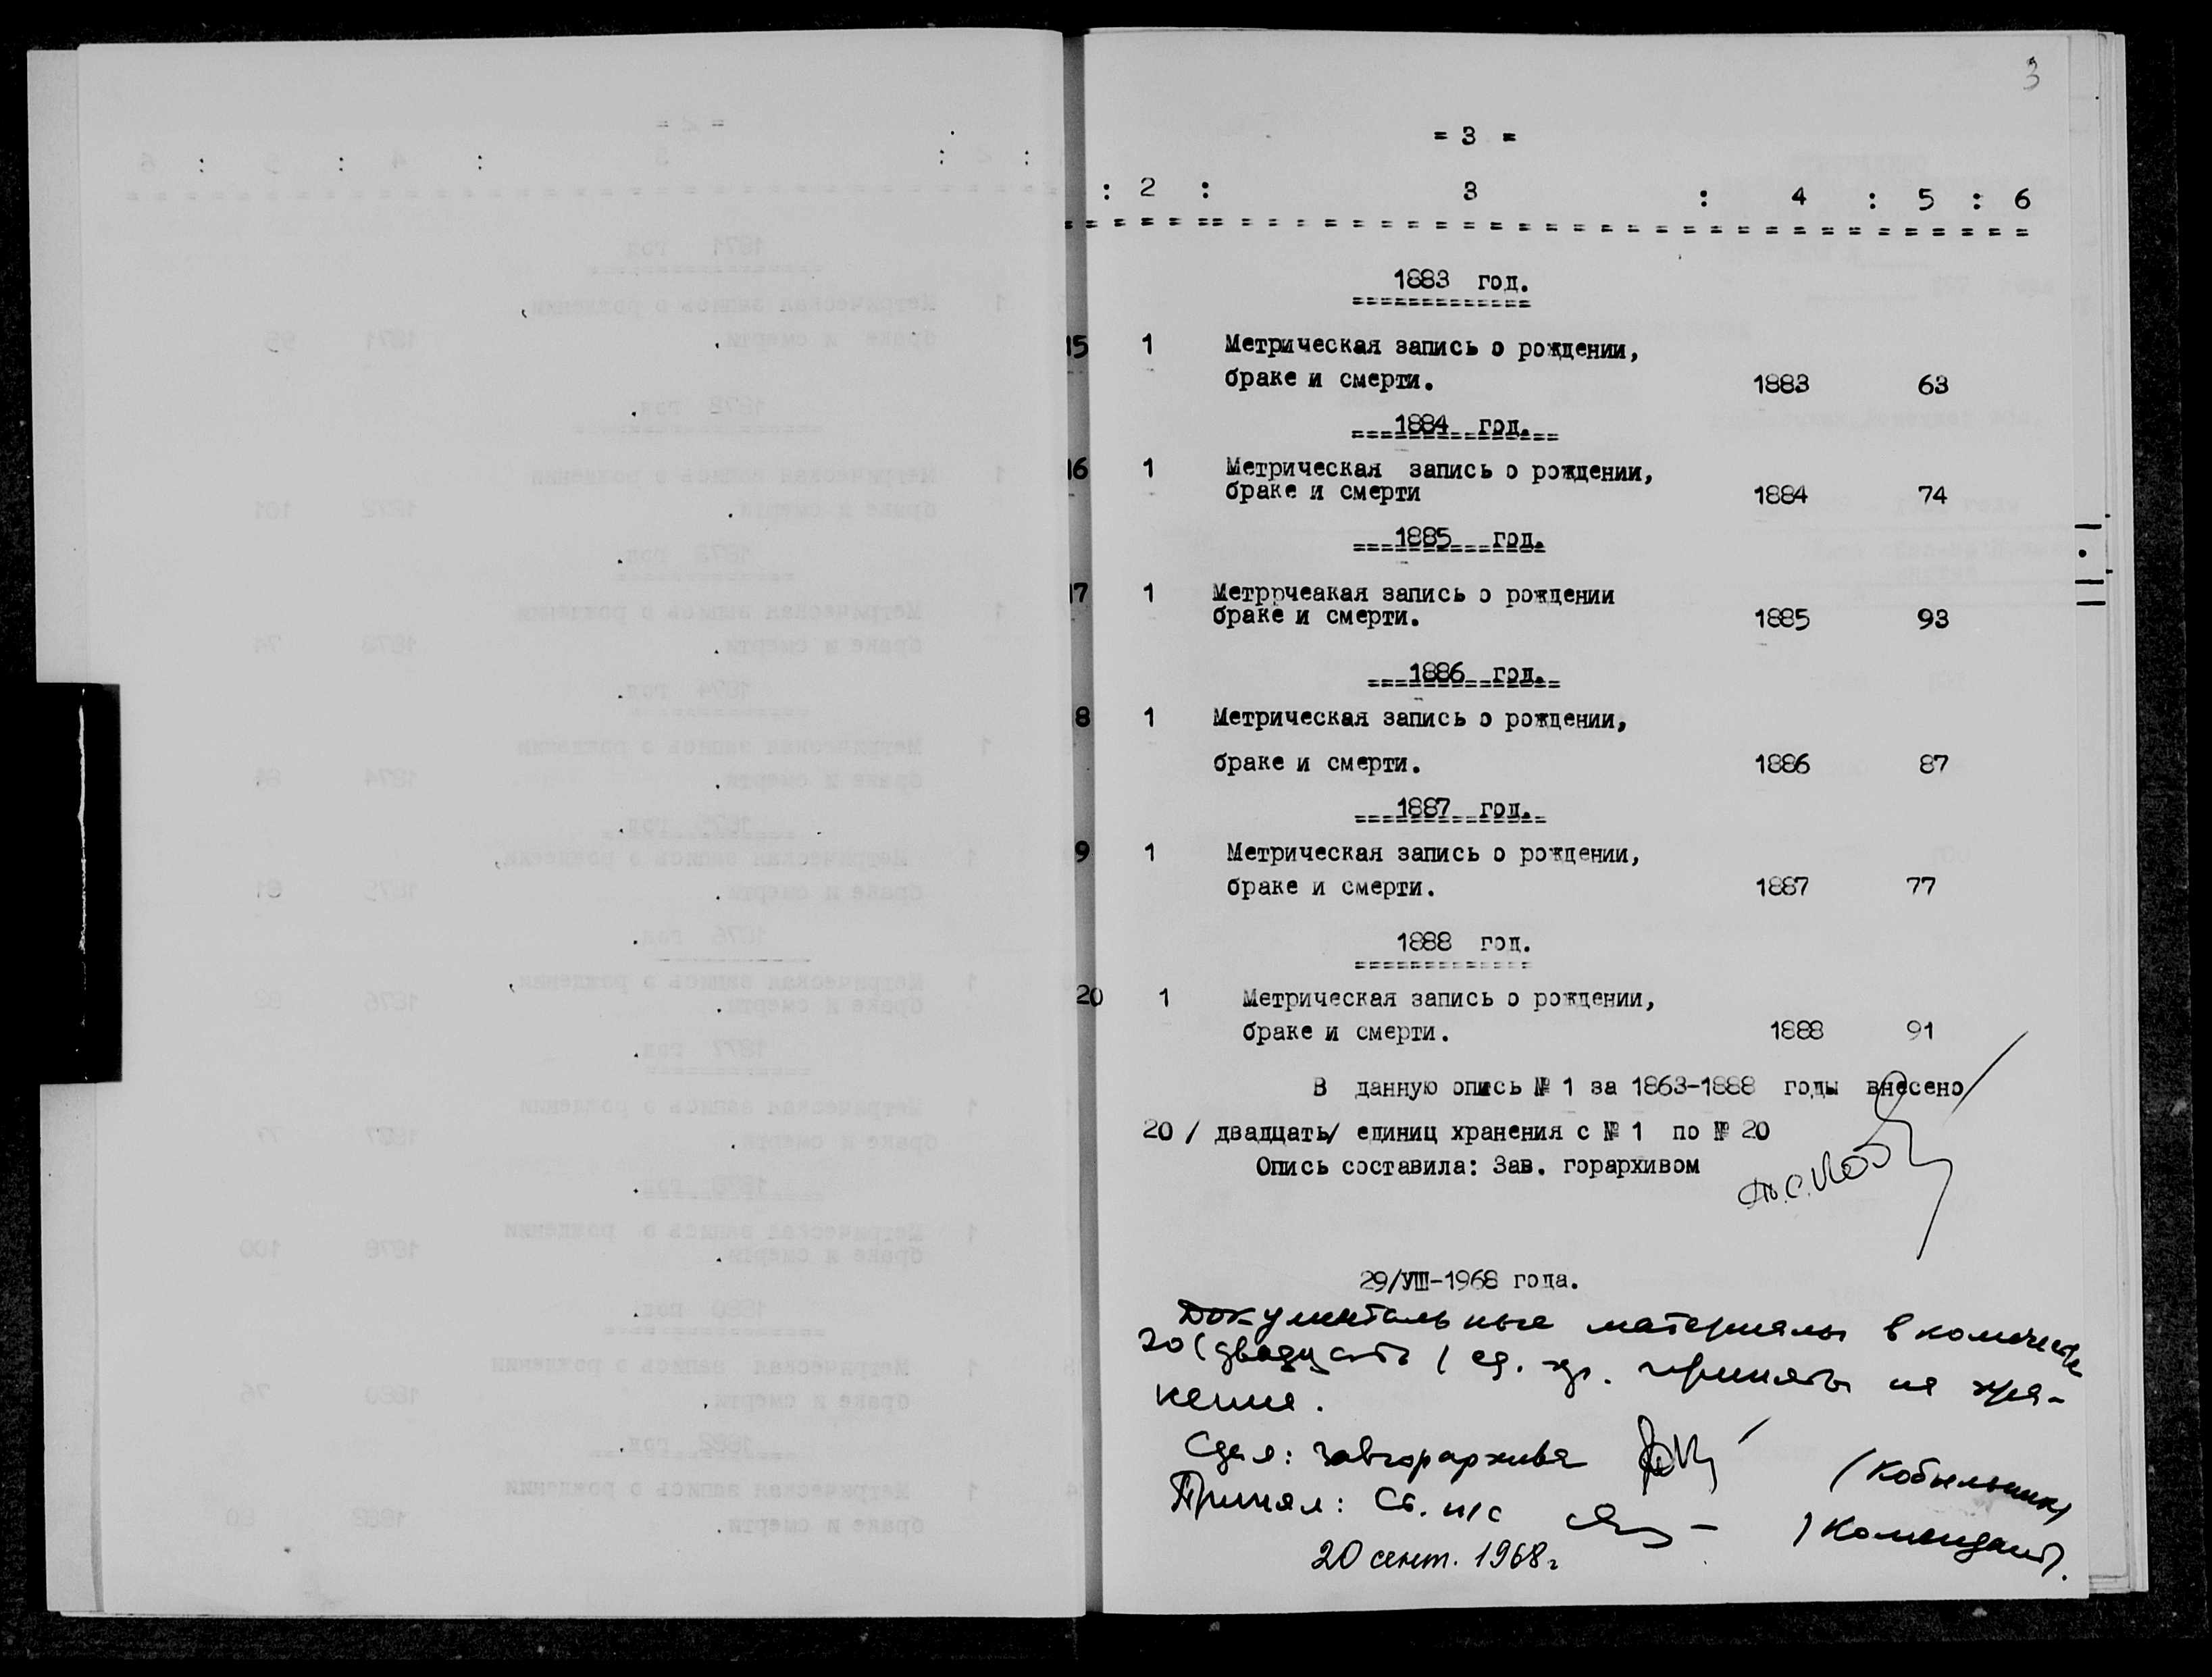 3
= 3 =
: 2 : 3 : 4 : 5 : 6
1883 год.
15 1 Метрическая запись о рождении,
браке и смерти. 1883 63
1884 год.
16 1 Метрическая запись о рождении,
браке и смерти 1884 74
1885 год.
17 1 Метррчеакая запись о рождении
браке и смерти. 1885 93
1886 год.
8 1 Метрическая запись о рождении,
браке и смерти. 1886 87
1887 год.
9 1 Метрическая запись о рождении,
браке и смерти. 1887 77
1888 год.
20 1 Метрическая запись о рождении,
браке и смерти. 1888 91
В данную опись № 1 за 1863-1888 годы внесено
20 / двадцать/ единиц хранения с № 1 по № 20
Опись составила: Зав. горархивом
29/УШ-1968 года.
Документальные материалы в количестве
20 (двадцать) ед. хр. приняты на хра-
нение.
Сдал: Завгорархива (Кобыльник)
Принял: Ст. н/с (Комендант).
20 сент. 1968 г.